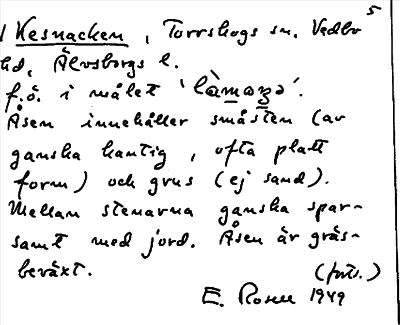 5
1 Kesnacken, Torrskogs sn, Vedbo
hd, Älvsborgs l.
f.ö. i målet 'làmaʒə'.
Åsen innehåller småsten (av
ganska kantig, ofta platt
form) och grus (ej sand).
Mellan stenarna ganska spar-
samt med jord. Åsen är gräs-
beväxt.
(forts.)
E. Rosell 1949